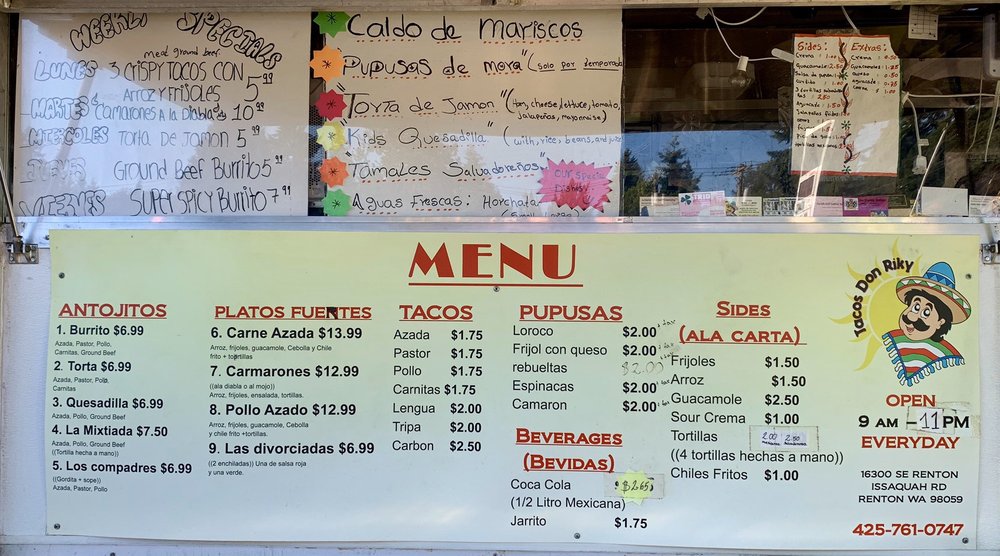 WEEKLY SPECIALS
meat ground beef
LUNES 3 CRISPY TOCOS CON 5.99
Arroz y Frijoles
MARTES Camarones A la Diabla 10.99
MIERCOLES TORTA DE JAMON 5.99
Ground Beef Burrito 5.99
VIERNES SUPER SPICY Burrito 7.99
Caldo de Mariscos
Pupusas de mora" (solo por temporada
"Torta de Jamon" (ham, cheese, lettuce, tomato,
Jalapeños, mayonnaise)
"Kids Quesadilla" (with, rice, beans, and juice
"Tamales Salvadoreños"
Aguas Frescas: Horchata
our special
Disney
Sides:
Crema
Guacamole 2.50
Extras:
Crema 0.50
Guacamole
MENU
ANTOJITOS
1. Burrito $6.99
Azada, Pastor, Pollo,
Carnitas, Ground Beef
2. Torta $6.99
Azada, Pastor, Pollo,
Carnitas
3. Quesadilla $6.99
Azada, Pollo, Ground Beef
4. La Mixtiada $7.50
Azada, Pollo, Ground Beef
((Tortilla hecha a mano))
5. Los compadres $6.99
((Gordita + sope))
Azada, Pastor, Pollo
PLATOS FUENTES
6. Carne Azada $13.99
Arroz, frijoles, guacamole, Cebolla y Chile
frito + tortillas
7. Carmarones $12.99
((ala diabla o al mojo))
Arroz, frijoles, ensalada, tortillas.
8. Pollo Azado $12.99
Arroz, frijoles, guacamole, Cebolla
y chile frito +tortillas.
9. Las divorciadas $6.99
((2 enchiladas)) Una de salsa roja
y una verde.
TACOS
Azada $1.75
Pastor $1.75
Pollo $1.75
Carnitas $1.75
Lengua $2.00
Tripa $2.00
Carbon $2.50
PUPUSAS
Loroco $2.00 + tax
Frijol con queso $2.00 + tax
rebueltas $2.00
Espinacas $2.00 + tax
Camaron $2.00 + tax
BEVERAGES
(BEVIDAS)
Coca Cola $2.65
(1/2 Litro Mexicana)
Jarrito $1.75
SIDES
(ALA CARTA)
Frijoles $1.50
Arroz $1.50
Guacamole $2.50
Sour Crema $1.00
Tortillas 2.00 2.50
((4 tortillas hechas a mano))
Chiles Fritos $1.00
Tacos Don Riky
OPEN
9 AM - 11 PM
EVERYDAY
16300 SE RENTON
ISSAQUAH RD
RENTON WA 98059
425-761-0747